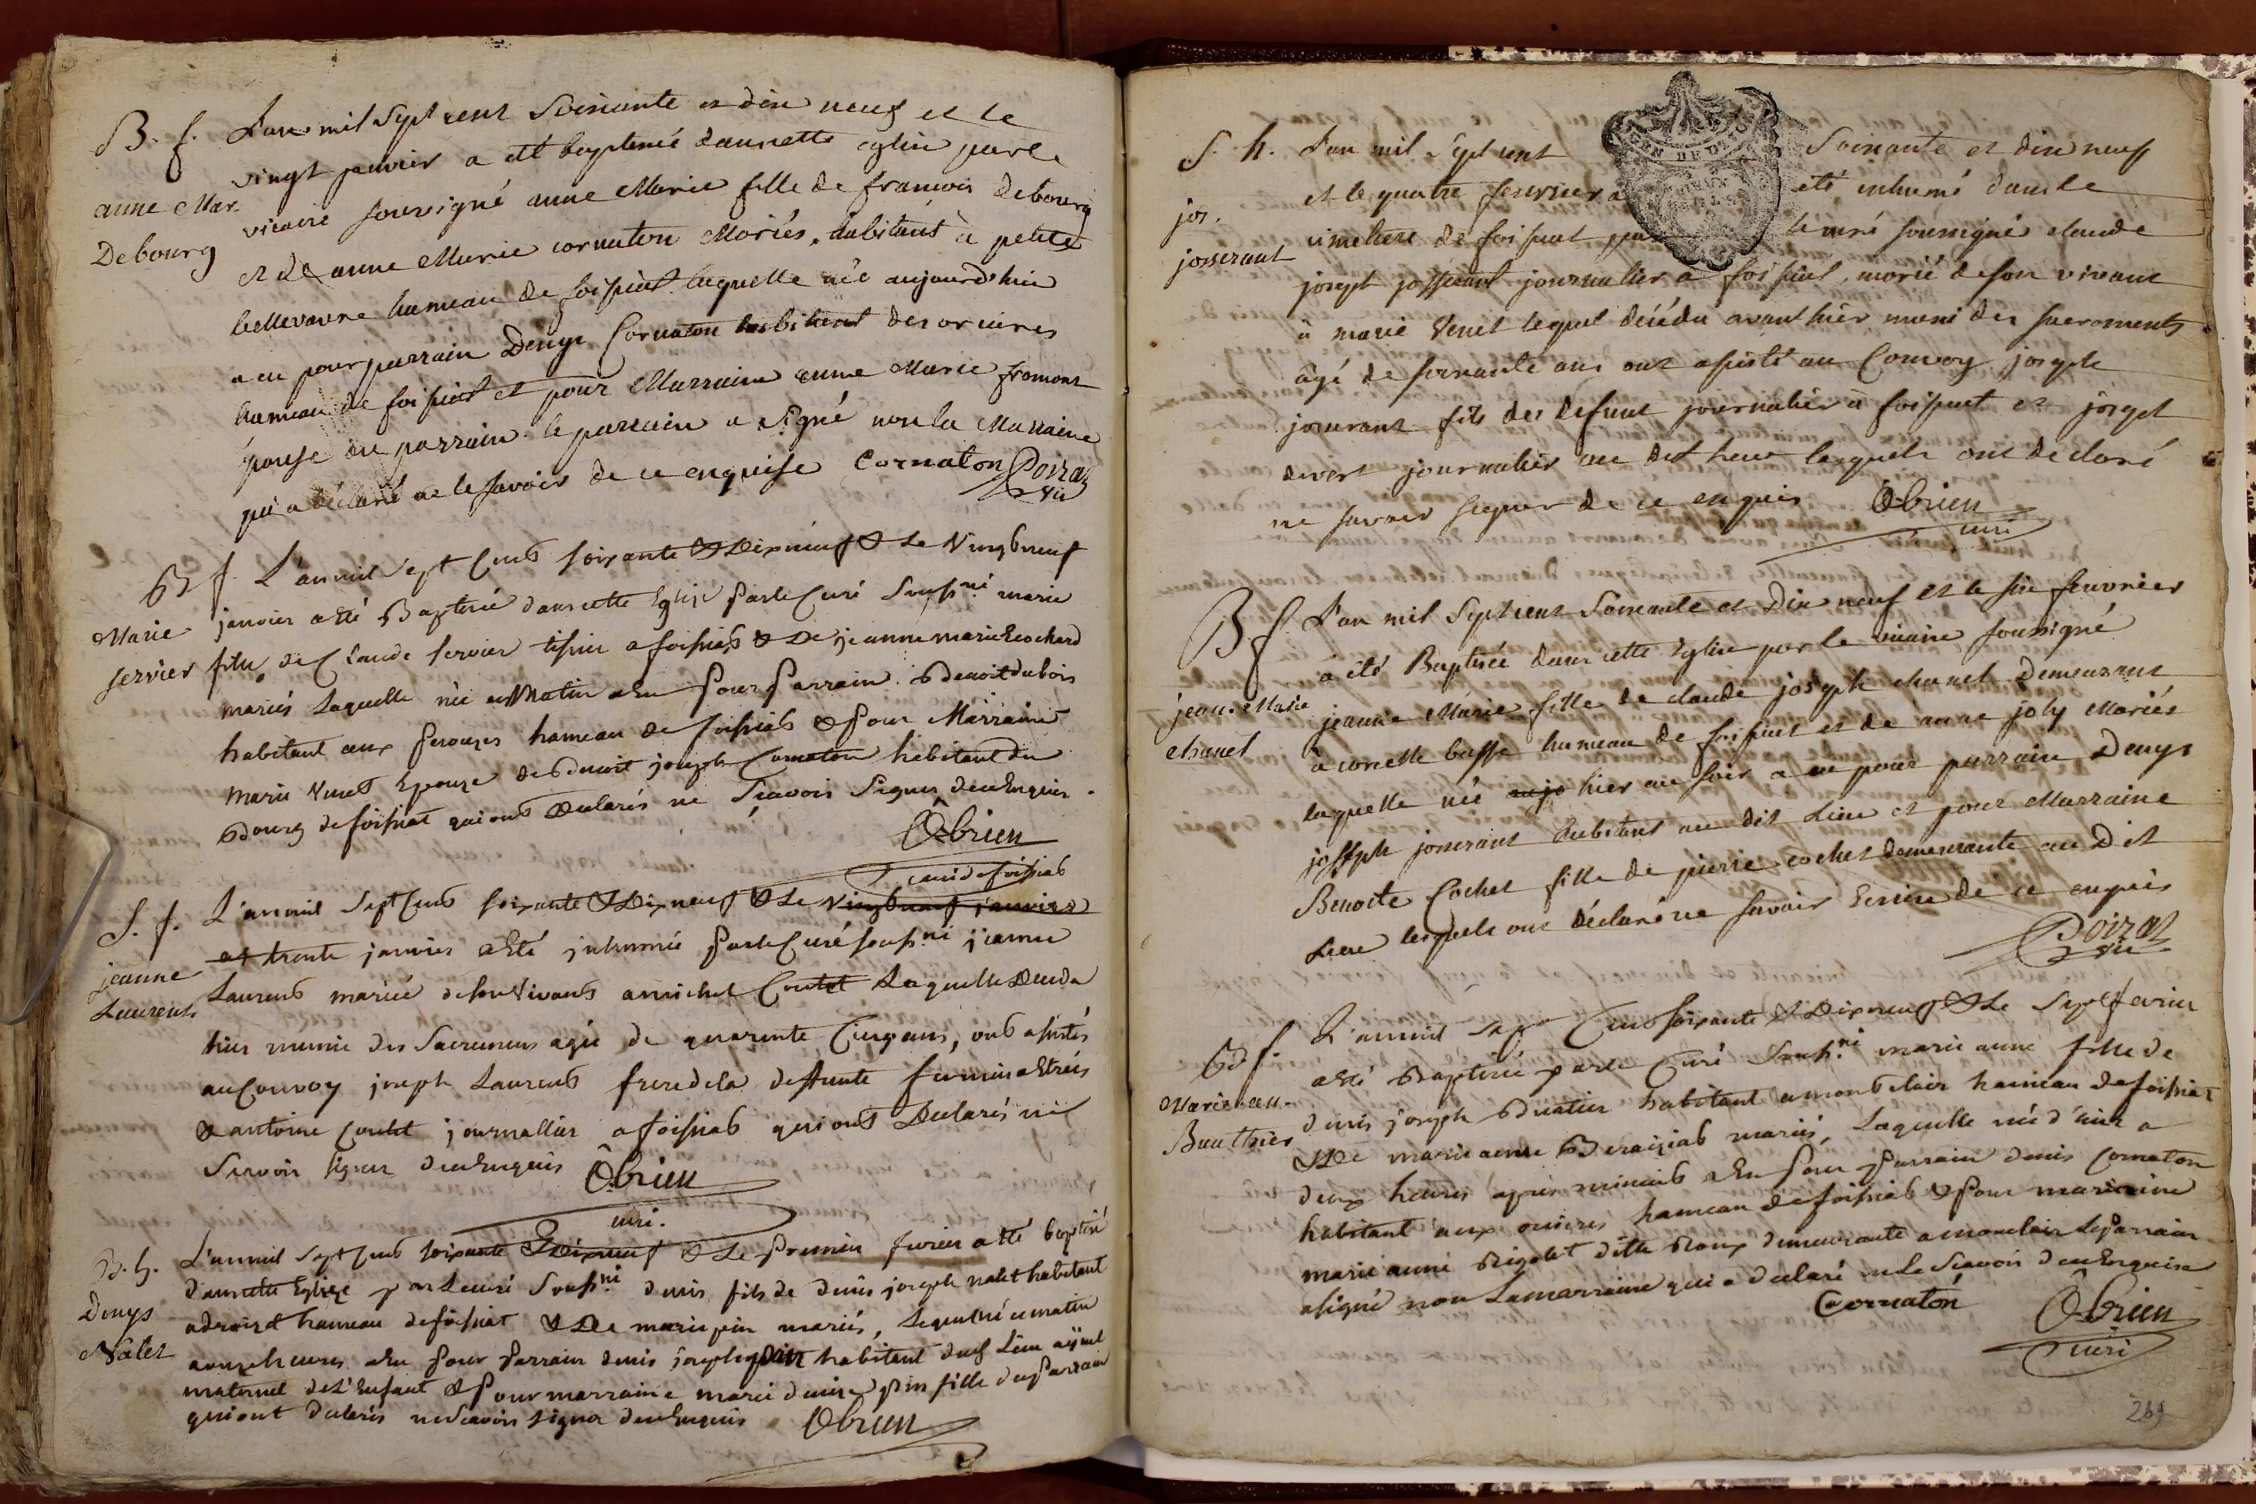 B. f.
anne Mar.
Debourg
L'an mil sept cent soixante et dix neuf et le
vingt janvier a eté baptisée dans cette eglise par le
vicaire soussigné anne Marie fille de francois Debourg
et de anne Marie cornaton Mariés, habitants à petite
bellevavre hameau de foissiat laquelle née aujourd'hui
a eu pour parrain Denys Cornaton habitant des orcieres
hameau de foissiat et pour Marraine anne Marie fromont
épouse du parrain. le parrain a signé non la Marraine
qui a déclaré ne le savoir de ce enquise Cornaton Poizat
vic
B f.
Marie
servier
L'an mil sept Cents soixante & Dix neuf & Le Vingt neuf
janvier a été Baptisée dans cette Eglise par le Curé souss.né marie
fille de Claude servier tissier a foissiat & De jeanne marie cochard
mariés Laquelle née ce Matin a Eu pour parrain Benoit dubois
habitant aux ferouses hameau de foissiat & pour Marraine
marie Venet Epouze de Benoit joseph Cornaton habitant du
Bourg de foissiat qui ont Declarés ne Scavoir Signer de ce Enquis.
Obrien
curé de foissiat
S. f.
jeanne
Laurent
L'an mil sept Cents soixante & Dix neuf & Le vingt neuf janvier
et trente janvier a été inhumée par le Curé souss.né jeanne
Laurent mariée de son Vivant a michel Coutet Laquelle deceda
hier munie des Sacremens agée de quarante Cinq ans, ont assistés
au Convoy joseph Laurent frere de la deffunte
& antoine Coutet journallier a foissiat qui ont Declarés ne
Scavoir signer de ce Enquis Obrien
curé.
B. h.
Denys
Nalet
L'an mil sept Cents soixante & Dix neuf & Le premier fevrier a été baptisé
dans cette Eglise par Le curé souss.né denis fils de denis joseph nalet habitant
hameau de foissiat & De marie pin mariés, Lequel né ce matin
a onze heures a Eu pour parrain denis joseph pin habitant dud Lieu ayeul
maternel de L'Enfant & Pour marraine marie denise pin fille du Parrain
qui ont declarés ne Scavoir signer de ce Enquis Obrien
S. h.
jos.
josserant
L'an mil sept cent soixante et dix neuf
et le quatre fevrier a été inhumé dans le
cimetiere de foissiat par le curé soussigné claude
joseph josserant journalier a foissiat, marié de son vivant
à marie Venet lequel décéda avant hier muni des sacrements
âgé de soixante ans ont assisté au Convoy joseph
josserant fils du defunt journalier a foissiat et joseph
devert journalier au dit lieu lesquels ont declaré
ne savoir signer de ce enquis Obrien
curé
B f.
jean. Marie
chanel
L'an mil sept cent soixante et Dix neuf et le six fevrier
a été Baptisée dans cette Eglise par le vicaire soussigné
jeanne Marie fille de claude joseph chanel Demeurant
à cornelle basse hameau de foissiat et de anne joly Mariés
laquelle née aujo hier au soir a eu pour parrain Denys
joseph josserant habitant au dit Lieu et pour Marraine
Benoite Cochet fille de pierre cochet demeurante au Dit
Lieu lesquels ont déclaré ne savoir Ecrire de ce enquis
Poizat
vic
B f.
Marie an.
Bauthier
L'an mil sept Cens soixante & Dix neuf & Le Sept fevrier
a été Baptisée par le Curé souss.né marie anne fille de
denis joseph Buatier habitant a montclair hameau de foissiat
& De marie anne mariés, Laquelle née d'hier a
deux heures après minuit a Eu pour Parrain denis Cornaton
habitant aux orcieres hameau de foissiat & pour marraine
marie anne Rigolet ditte Roux demeurante a monclair Le Parrain
a signé non La marraine qui a declaré ne le Scavoir de ce Enquise
Cornaton Obrien
curé
269